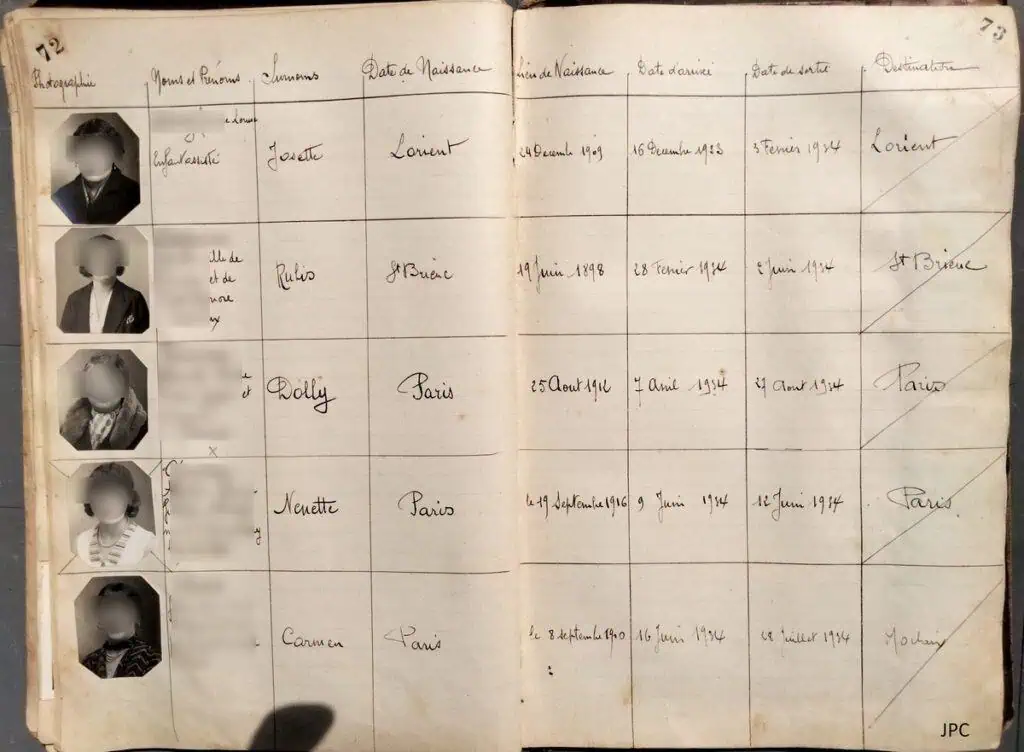 72
73
Photographie Noms et Prénoms Surnoms Date de Naissance Lieu de Naissance Date d'arrivée Date de sortie Destination
e Louise
Enfant assisté Josette Lorient 24 Decembre 1909 16 Decembre 1933 3 Fevrier 1934 Lorient
ille de
et de
nore
x
Rubis St Brieuc 19 Juin 1898 28 Fevrier 1934 2 Juin 1934 St Brieuc
e
et
Dolly Paris 25 Aout 1912 7 Avril 1934 27 Aout 1934 Paris
x
Nenette Paris le 19 Septembre 1916 9 Juin 1934 12 Juin 1934 Paris
y
Carmen Paris le 8 septembre 1900 16 Juin 1934 28 Juillet 1934
JPC